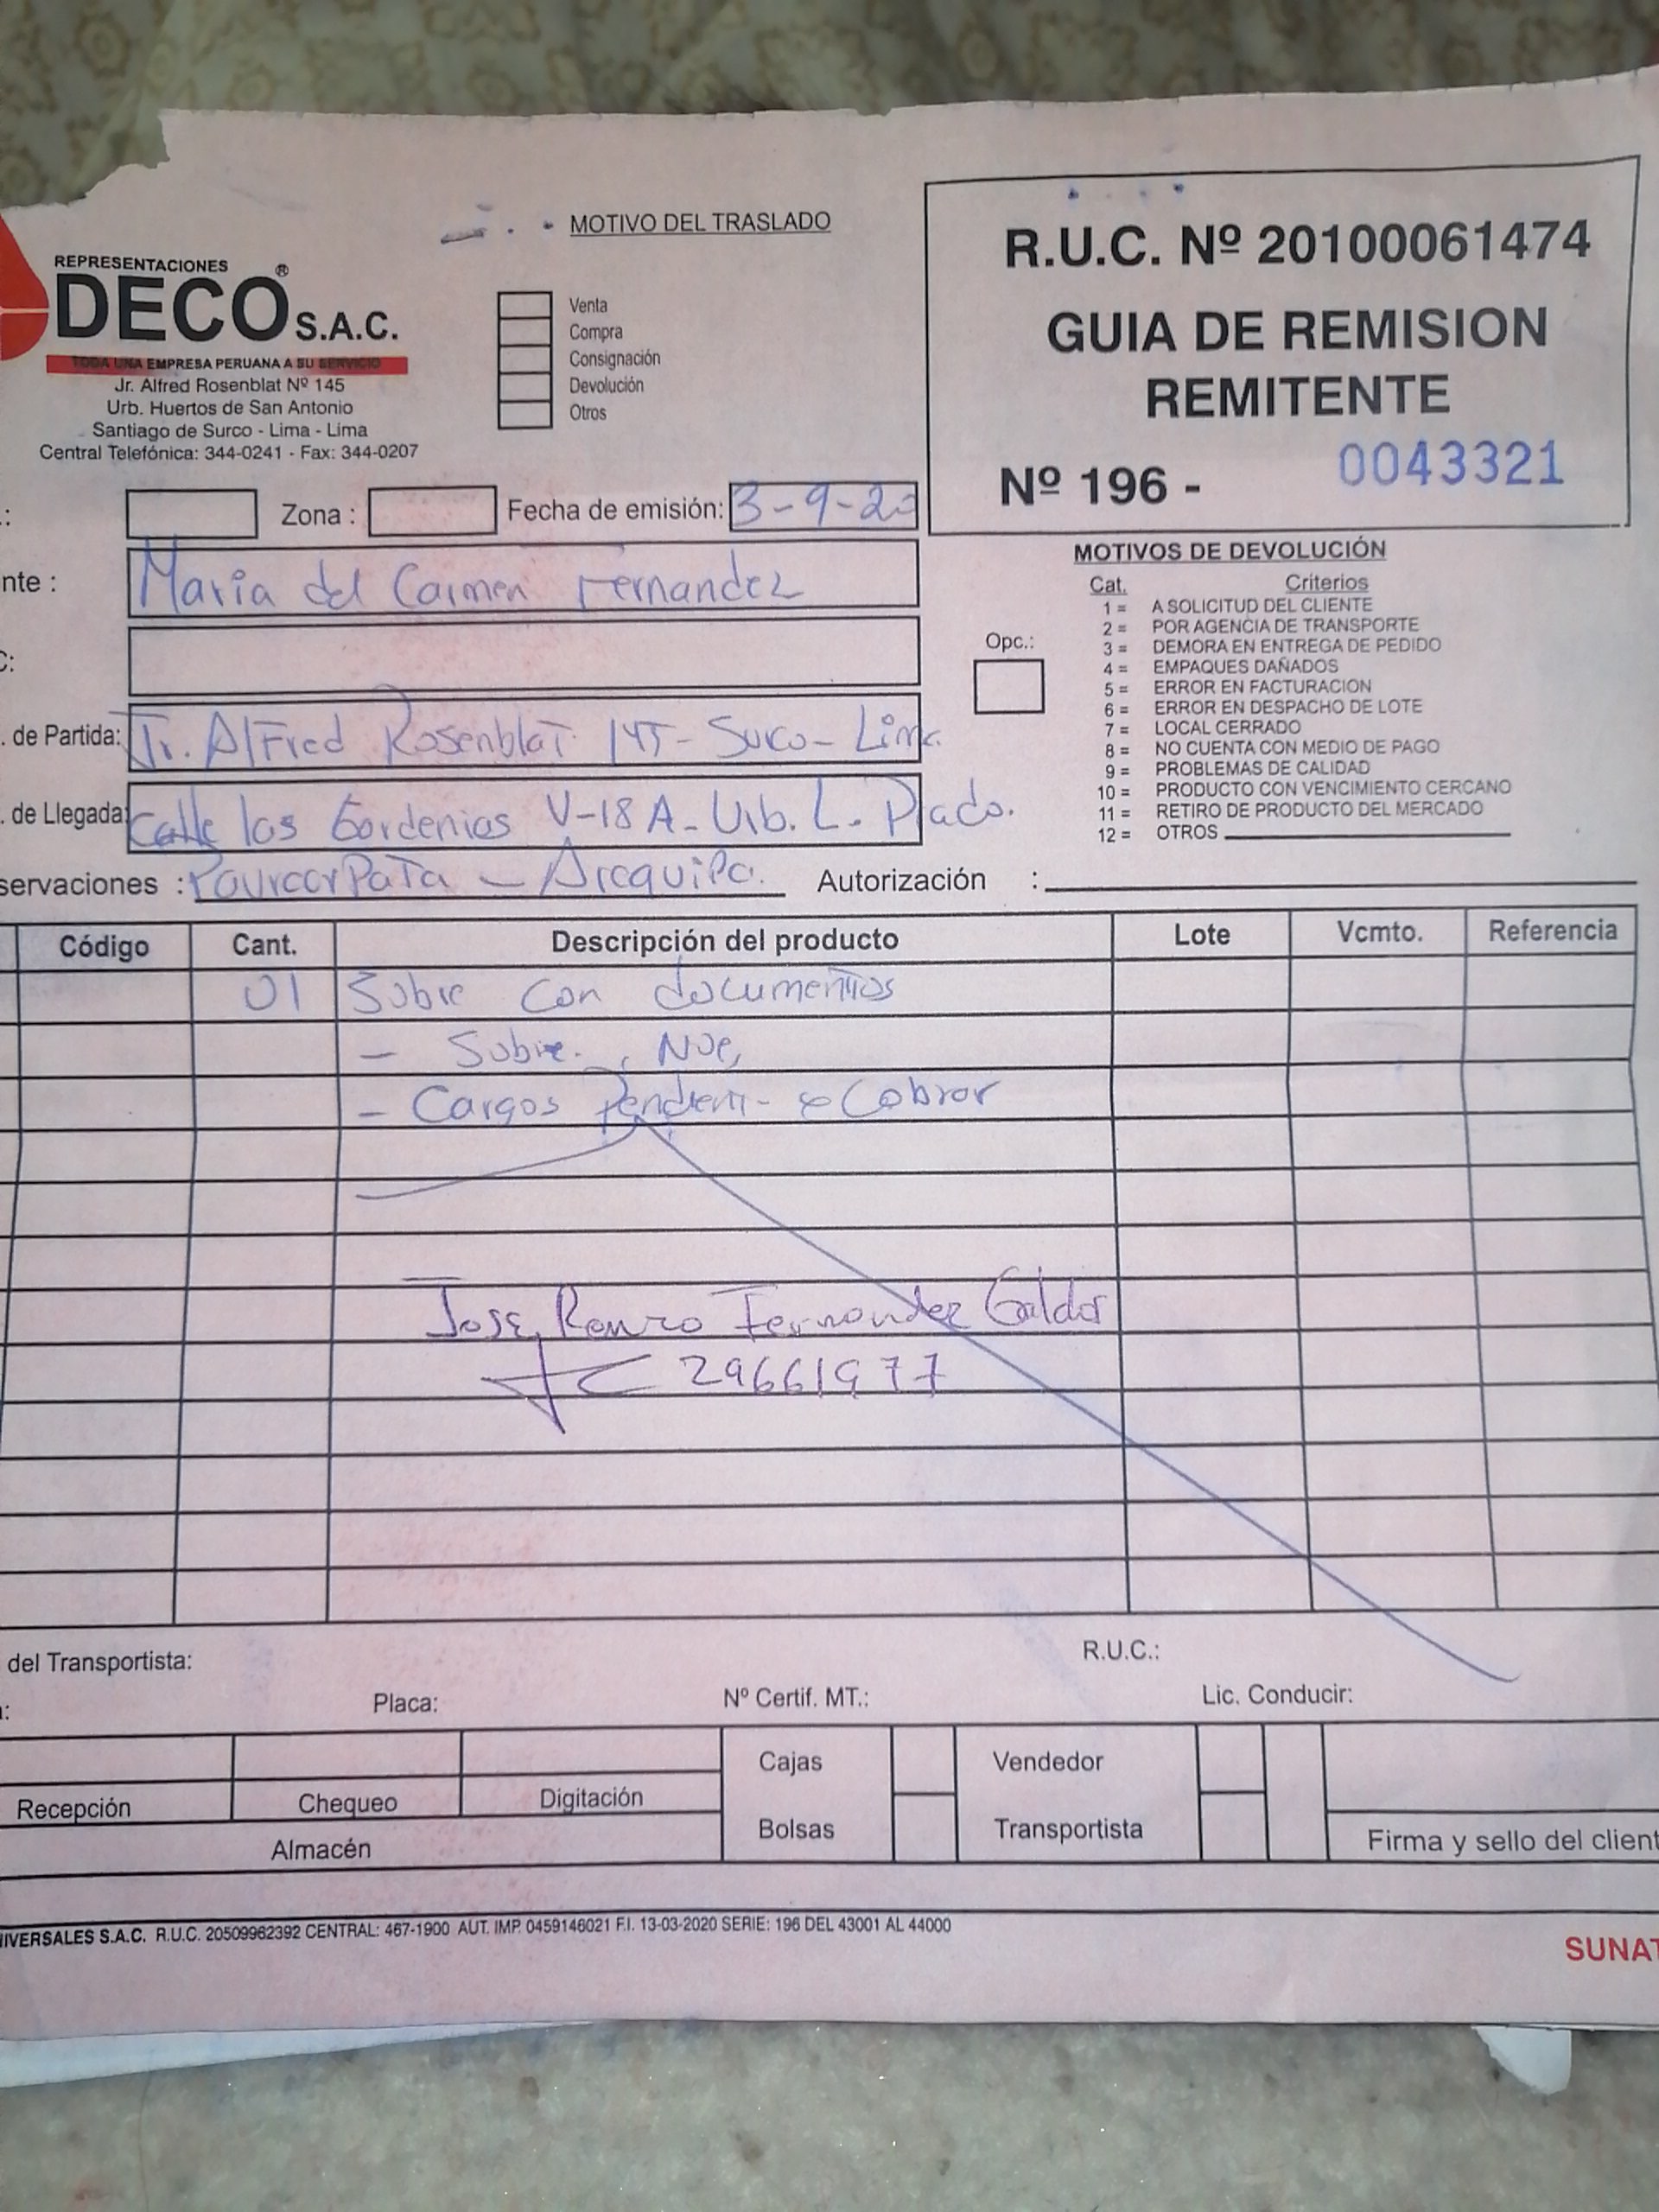 REPRESENTACIONES
DECO® S.A.C.
TODA UNA EMPRESA PERUANA A SU SERVICIO
Jr. Alfred Rosenblat Nº 145
Urb. Huertos de San Antonio
Santiago de Surco - Lima - Lima
Central Telefónica: 344-0241 - Fax: 344-0207
MOTIVO DEL TRASLADO
Venta
Compra
Consignación
Devolución
Otros
R.U.C. Nº 20100061474
GUIA DE REMISION
REMITENTE
Nº 196 - 0043321
.: Zona : Fecha de emisión: 3-9-20
nte : Maria del Carmen Fernandez
C:
. de Partida: Jr. Alfred Rosenblat 145- Surco- Lima
. de Llegada: Calle las Gardenias V-18 A- Urb. L. Prado.
servaciones : Paucarpata - Arequipa. Autorización :
MOTIVOS DE DEVOLUCIÓN
Cat. Criterios
Opc.:
1 = A SOLICITUD DEL CLIENTE
2 = POR AGENCIA DE TRANSPORTE
3 = DEMORA EN ENTREGA DE PEDIDO
4 = EMPAQUES DAÑADOS
5 = ERROR EN FACTURACION
6 = ERROR EN DESPACHO DE LOTE
7 = LOCAL CERRADO
8 = NO CUENTA CON MEDIO DE PAGO
9 = PROBLEMAS DE CALIDAD
10 = PRODUCTO CON VENCIMIENTO CERCANO
11 = RETIRO DE PRODUCTO DEL MERCADO
12 = OTROS
Código Cant. Descripción del producto Lote Vcmto. Referencia
01 Sobre con documentos
- Sobre.
- Cargos Cobrar
Jose Renzo Fernandez
29661977
del Transportista: R.U.C.:
: Placa: Nº Certif. MT.: Lic. Conducir:
Cajas Vendedor
Recepción Chequeo Digitación
Bolsas Transportista
Almacén Firma y sello del client
IVERSALES S.A.C. R.U.C. 20509962392 CENTRAL: 467-1900 AUT. IMP. 0459146021 F.I. 13-03-2020 SERIE: 196 DEL 43001 AL 44000
SUNAT